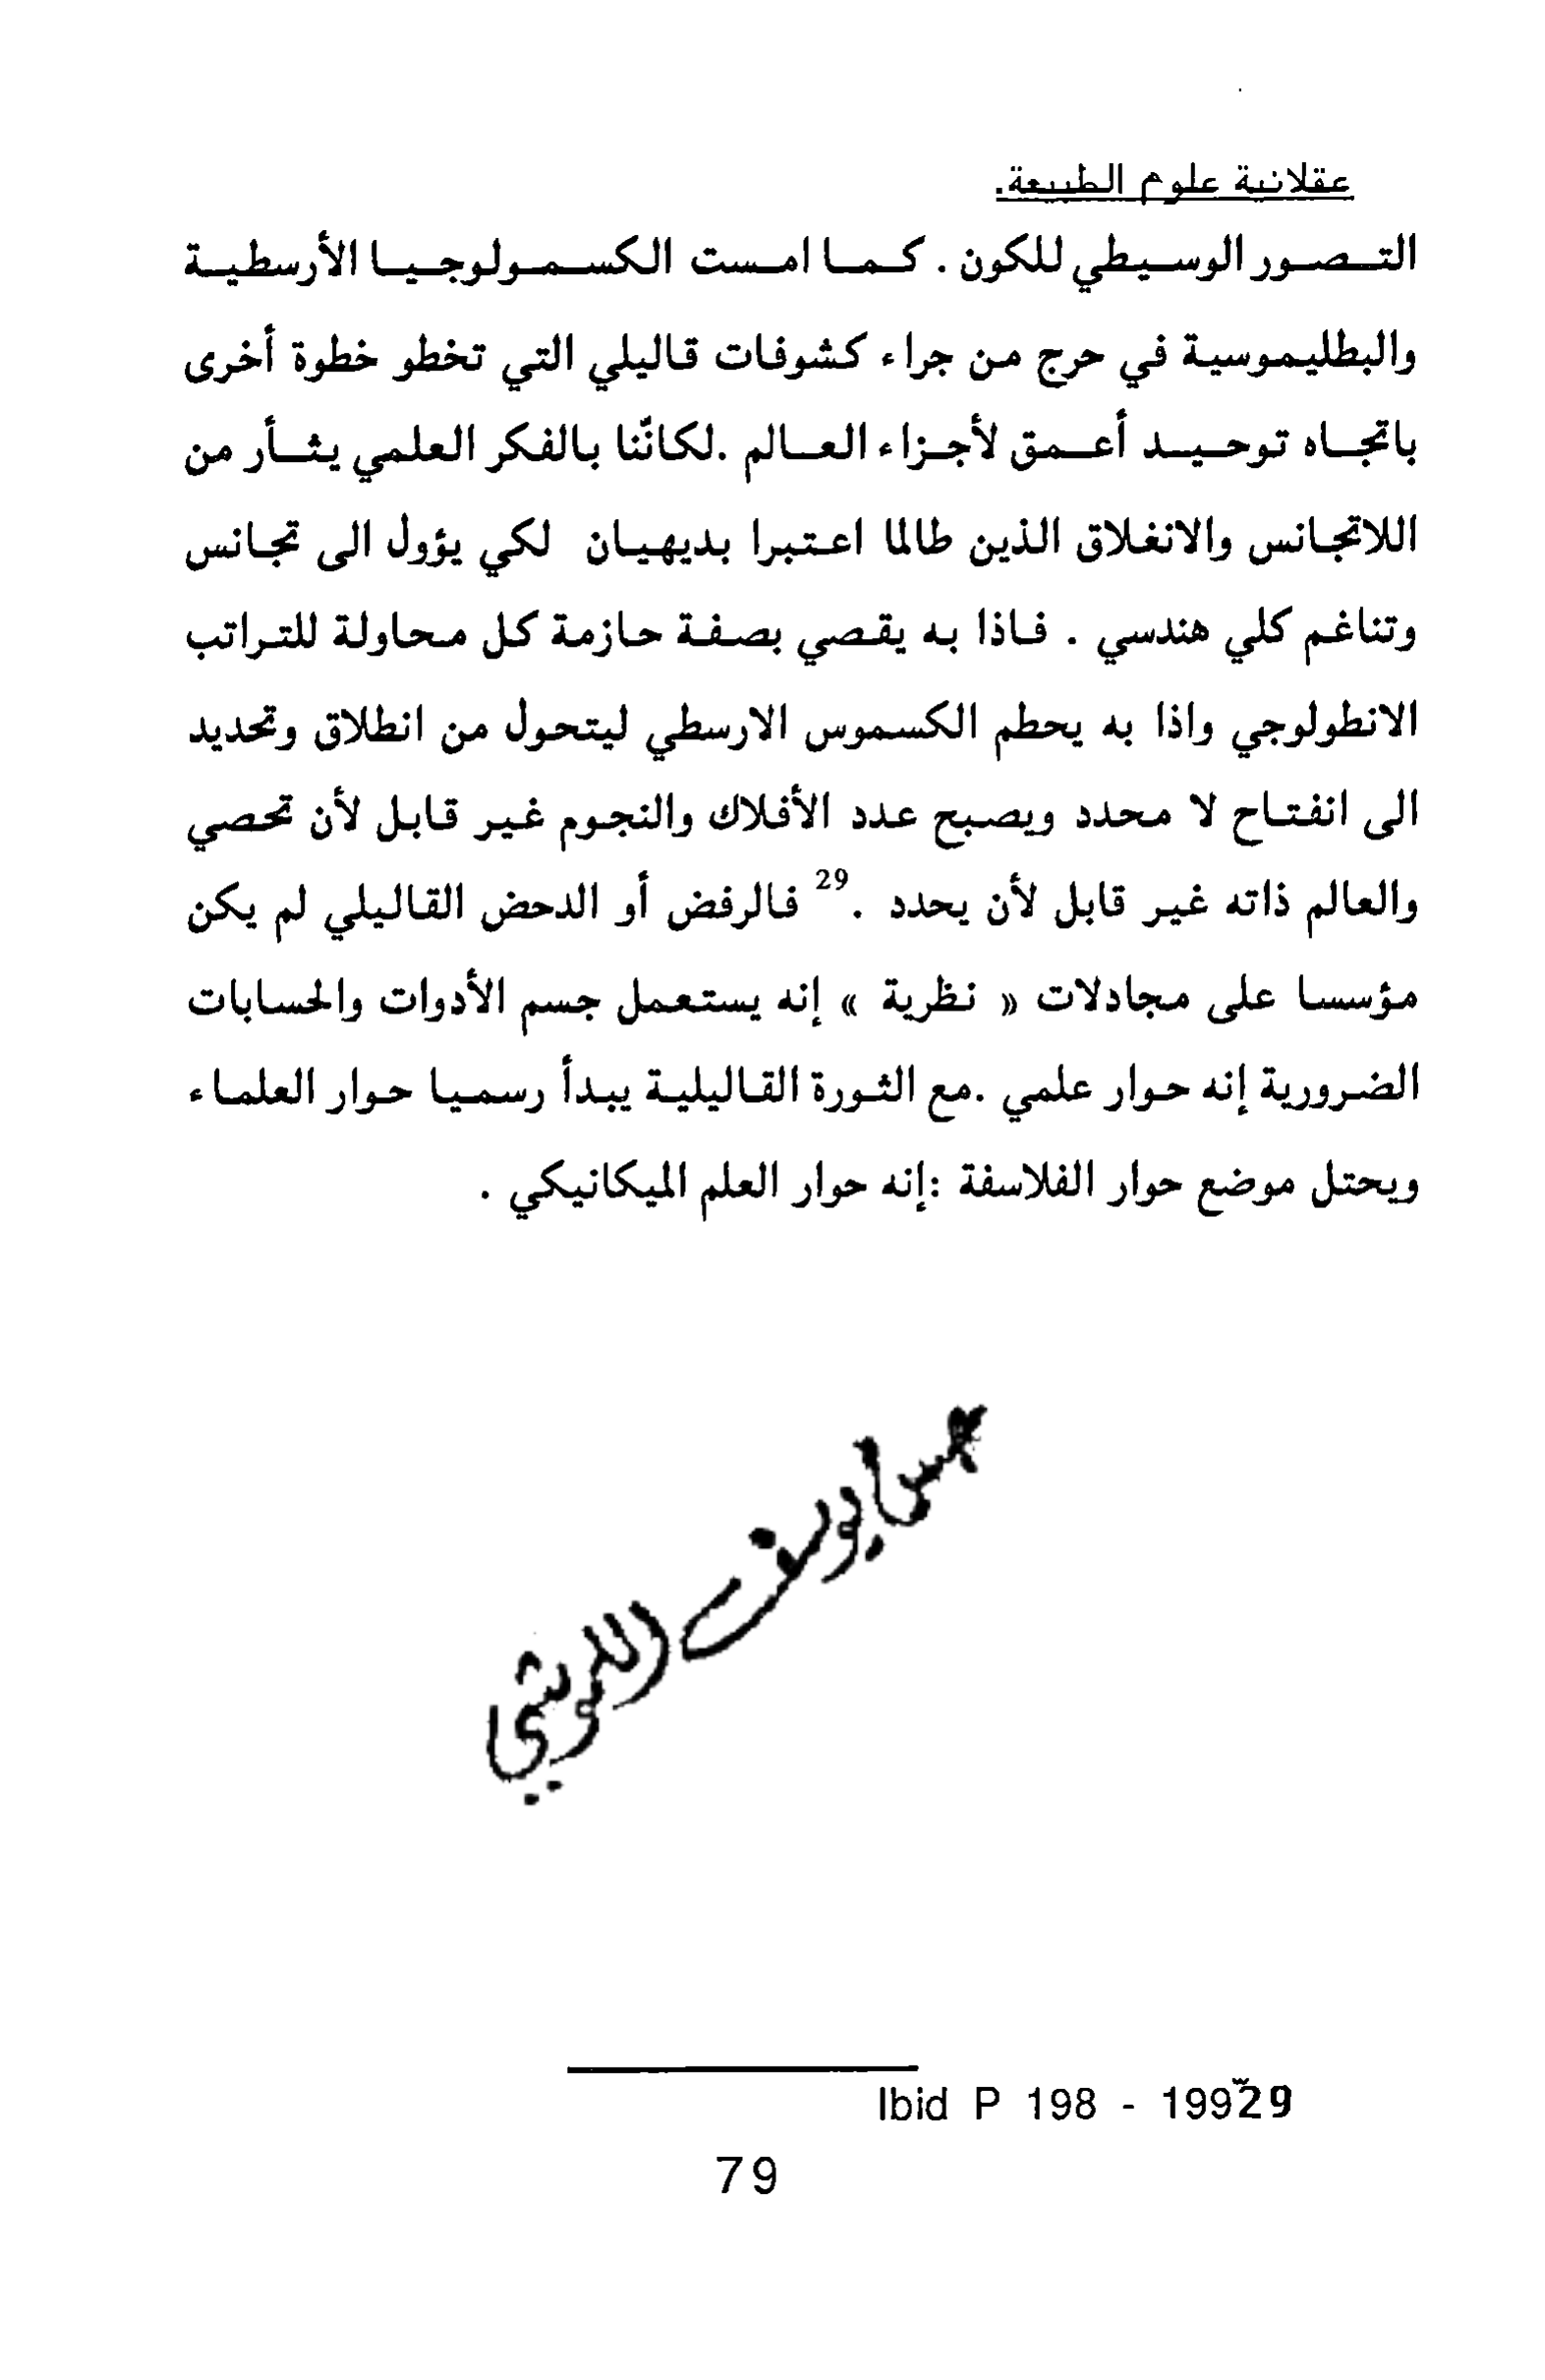 عقلانية علوم الطبيعة.
التصور الوسيطي للكون . كما امست الكسمولوجيا الأرسطية
والبطليموسية في حرج من جراء كشوفات قاليلي التي تخطو خطوة أخرى
باتجاه توحيد أعمق لأجزاء العالم .لكانّنا بالفكر العلمي يثأر من
اللاتجانس والانغلاق الذين طالما اعتبرا بديهيان لكي يؤول الى تجانس
وتناغم كلي هندسي . فاذا به يقصي بصفة حازمة كل محاولة للتراتب
الانطولوجي واذا به يحطم الكسموس الارسطي ليتحول من انطلاق وتحديد
الى انفتاح لا محدد ويصبح عدد الأفلاك والنجوم غير قابل لأن تحصي
والعالم ذاته غير قابل لأن يحدد .29 فالرفض أو الدحض القاليلي لم يكن
مؤسسا على مجادلات « نظرية » إنه يستعمل جسم الأدوات والحسابات
الضرورية إنه حوار علمي .مع الثورة القاليلية يبدأ رسميا حوار العلماء
ويحتل موضع حوار الفلاسفة :إنه حوار العلم الميكانيكي .
يوسف
Ibid P 198 - 19929
79